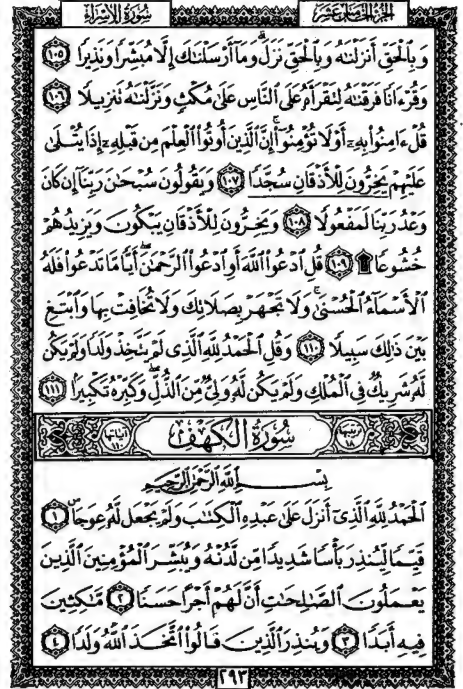 سُورَةُ الإِسْرَاءِ الجُزْءُ الخَامِسَ عَشَرَ
وَبِٱلْحَقِّ أَنزَلْنَٰهُ وَبِٱلْحَقِّ نَزَلَ ۗ وَمَآ أَرْسَلْنَٰكَ إِلَّا مُبَشِّرًا وَنَذِيرًا ١٠٥
وَقُرْءَانًا فَرَقْنَٰهُ لِتَقْرَأَهُۥ عَلَى ٱلنَّاسِ عَلَىٰ مُكْثٍ وَنَزَّلْنَٰهُ تَنزِيلًا ١٠٦
قُلْ ءَامِنُوا۟ بِهِۦٓ أَوْ لَا تُؤْمِنُوٓا۟ ۚ إِنَّ ٱلَّذِينَ أُوتُوا۟ ٱلْعِلْمَ مِن قَبْلِهِۦٓ إِذَا يُتْلَىٰ
عَلَيْهِمْ يَخِرُّونَ لِلْأَذْقَانِ سُجَّدًا ١٠٧ وَيَقُولُونَ سُبْحَٰنَ رَبِّنَآ إِن كَانَ
وَعْدُ رَبِّنَا لَمَفْعُولًا ١٠٨ وَيَخِرُّونَ لِلْأَذْقَانِ يَبْكُونَ وَيَزِيدُهُمْ
خُشُوعًا ۩ ١٠٩ قُلِ ٱدْعُوا۟ ٱللَّهَ أَوِ ٱدْعُوا۟ ٱلرَّحْمَٰنَ ۖ أَيًّا مَّا تَدْعُوا۟ فَلَهُ
ٱلْأَسْمَآءُ ٱلْحُسْنَىٰ ۚ وَلَا تَجْهَرْ بِصَلَاتِكَ وَلَا تُخَافِتْ بِهَا وَٱبْتَغِ
بَيْنَ ذَٰلِكَ سَبِيلًا ١١٠ وَقُلِ ٱلْحَمْدُ لِلَّهِ ٱلَّذِى لَمْ يَتَّخِذْ وَلَدًا وَلَمْ يَكُن
لَّهُۥ شَرِيكٌ فِى ٱلْمُلْكِ وَلَمْ يَكُن لَّهُۥ وَلِىٌّ مِّنَ ٱلذُّلِّ ۖ وَكَبِّرْهُ تَكْبِيرًۢا ١١١
ترتيبها ١٨ سُورَةُ الكَهْفِ آياتها ١١٠
بِسْمِ ٱللَّهِ ٱلرَّحْمَٰنِ ٱلرَّحِيمِ
ٱلْحَمْدُ لِلَّهِ ٱلَّذِىٓ أَنزَلَ عَلَىٰ عَبْدِهِ ٱلْكِتَٰبَ وَلَمْ يَجْعَل لَّهُۥ عِوَجَا ۜ ١
قَيِّمًا لِّيُنذِرَ بَأْسًا شَدِيدًا مِّن لَّدُنْهُ وَيُبَشِّرَ ٱلْمُؤْمِنِينَ ٱلَّذِينَ
يَعْمَلُونَ ٱلصَّٰلِحَٰتِ أَنَّ لَهُمْ أَجْرًا حَسَنًا ٢ مَّٰكِثِينَ
فِيهِ أَبَدًا ٣ وَيُنذِرَ ٱلَّذِينَ قَالُوا۟ ٱتَّخَذَ ٱللَّهُ وَلَدًا ٤
٢٩٣